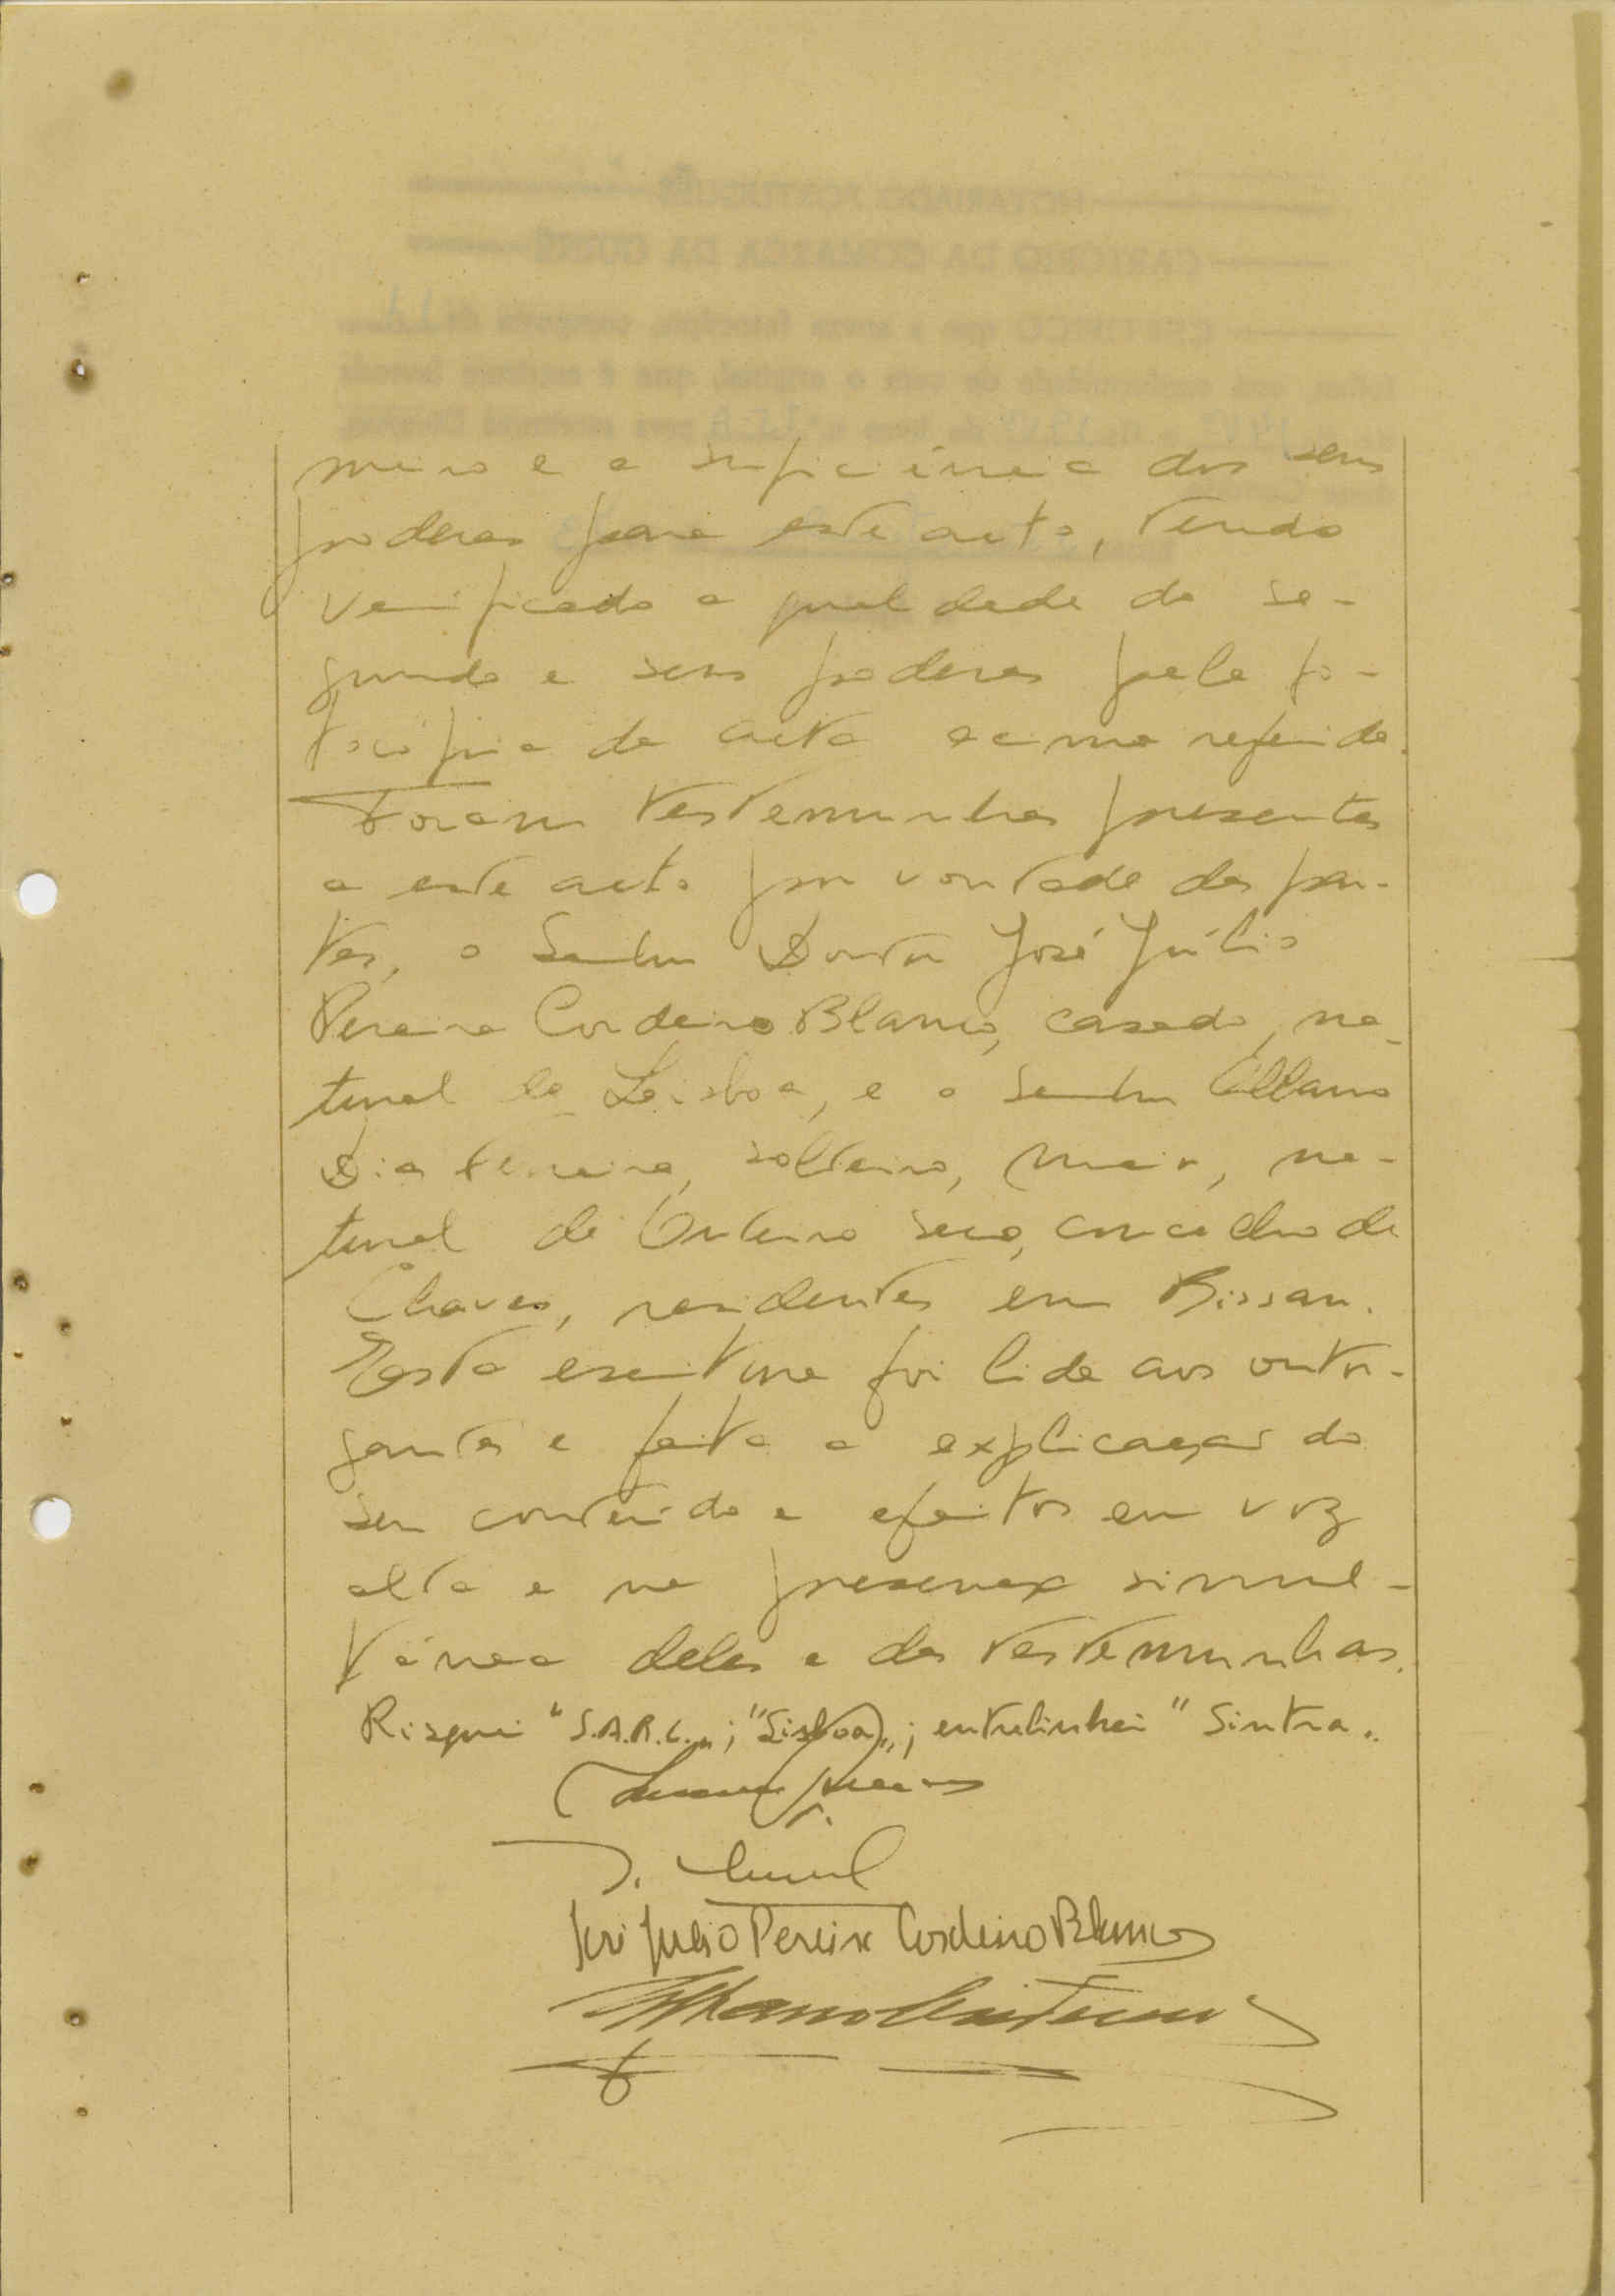 meiro e a suficiência dos seus
poderes para este acto, tendo
verificado a qualidade do se-
gundo e seus poderes pela fo-
tocópia da acta acima referida.
Foram testemunhas presentes
a este acto por vontade das par-
tes, o Senhor Doutor José Júlio
Pereira Cordeiro Blanco, casado, na-
tural de Lisboa, e o Senhor Albano
Dias Ferreira, solteiro, maior, na-
tural de Outeiro Seco, concelho de
Chaves, residentes em Bissau.
Esta escritura foi lida aos outor-
gantes e feita a explicação do
seu conteúdo e efeitos em voz
alta e na presença simul-
tânea deles e das testemunhas.
Risquei "S.A.R.L."; "Lisboa"; entrelinhei "Sintra".
José Julio Pereira Cordeiro Blanco
NOTARIADO PORTUGUÊS
CARTÓRIO DA COMARCA DA GUINÉ
CERTIFICO que a anexa fotocópia, composta de 11
folhas, está conforme